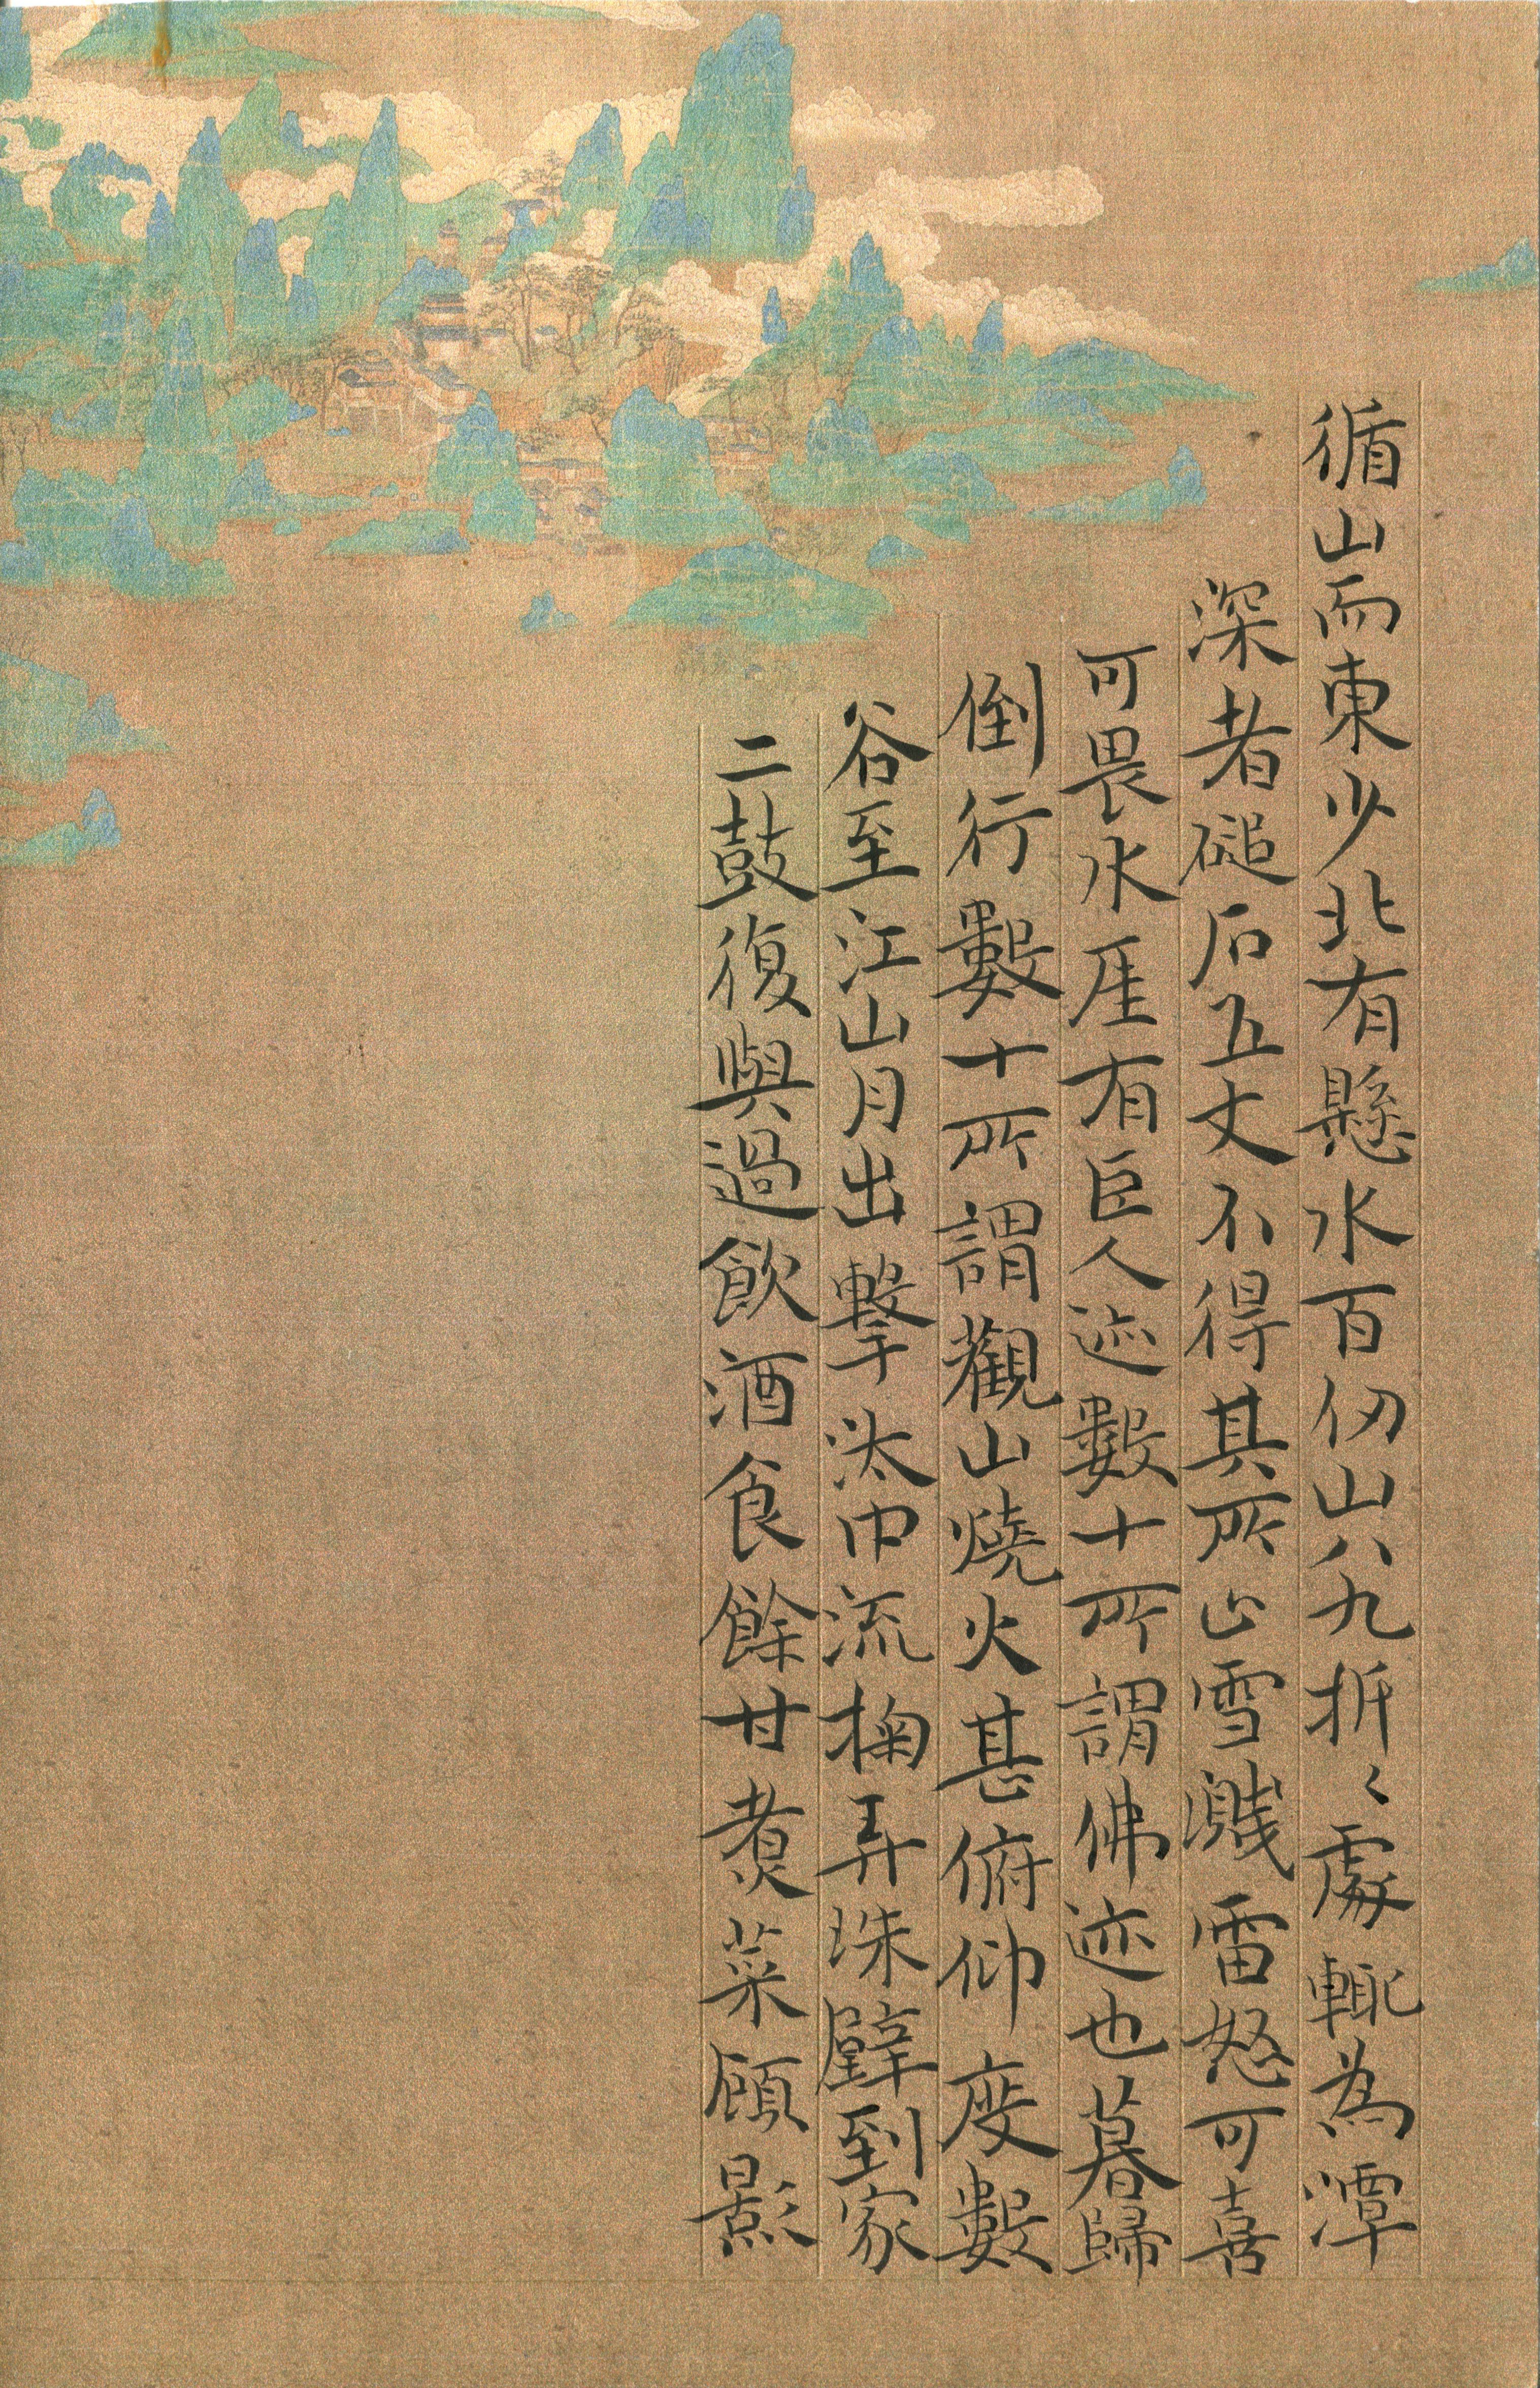 循山而東少北有懸水百仞山八九折々處輒為潭
深者磓石五丈不得其所止雪濺雷怒可喜
可畏水厓有巨人迹數十所謂佛迹也暮歸
倒行數十所謂觀山燒火甚俯仰度數
谷至江山月出擊汰中流掬弄珠璧到家
二鼓復與過飲酒食餘甘煮菜顧影